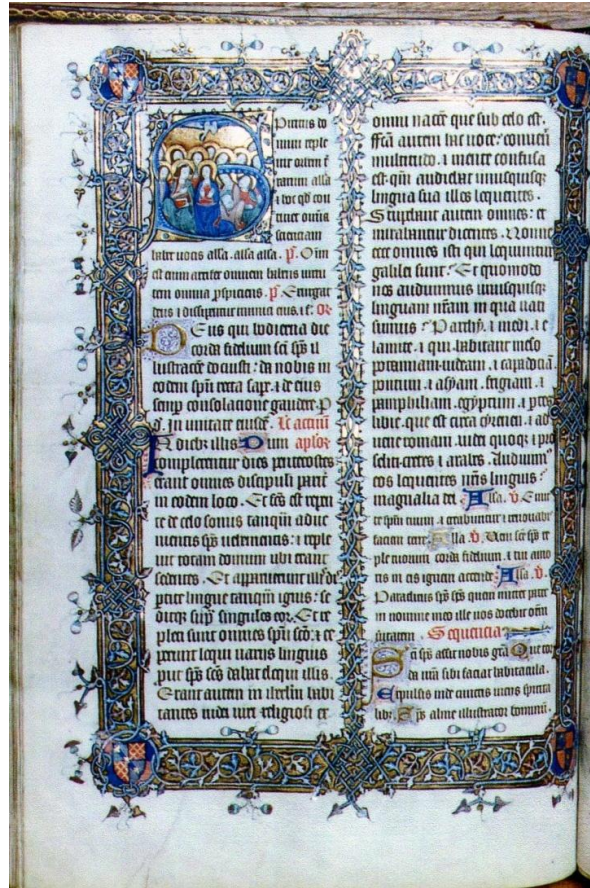 Spiritus do
mini reple
uit orbem t̄
rarum alla
⁊ hoc qd̄ con
tinet omnia
scientiam
habet uocis alla. alla alla. p̄.
tem omnia p̄spiciens. p̄. Exurgat
deus ⁊ dissipentur inimici eius. or̄
Deus qui hodierna die
corda fidelium sc̄i sp̄s il
lustracōe docuisti: da nobis in
eodem sp̄u recta sap̄e. ⁊ de eius
semp̄ consolacione gaudere. P
In unitate eiusdē. Lc̄ actuū
In dieb; illis Dum aplo℞
complerentur dies pentecostes
erant omnes discipuli parit̄
in eodem loco. Et fc̄s est repen
te de celo sonus tanq̄m adue
nientis sp̄s uehementis: ⁊ reple
uit totam domum ubi erant
sedentes. Et apparuerunt illis dis
pertite lingue tanq̄m ignis: se
ditq; sup̄ singulos eo℞. Et re
pleti sunt omnes sp̄u sc̄o: ⁊ ce
perunt loqui uariis linguis
put sp̄s sc̄s dabat eloqui illis.
Erant autem in ihrl̄m habi
tantes iudei uiri religiosi ex
omni nacōe que sub celo est.
Fc̄a autem hac uoce: conuen̄
multitudo. ⁊ mente confusa
est. qm̄ audiebat unusquisq;
lingua sua illos loquentes.
Stupebant autem omnes: et
mirabantur dicentes. Nonne
ecce omnes isti qui loquuntur
galilei sunt: Et quomodo
nos audiuimus unusquisq;
linguam nr̄am in qua nati
sumus: Parthy. ⁊ medi. ⁊ e
lamite. ⁊ qui habitant meso
potamiam. iudeam. ⁊ capadociā.
pontum. ⁊ asyam. frigiam. ⁊
pamphiliam. egyptum. ⁊ p̄tes
libie. que est circa cyrenen. ⁊ ad
uene romani. iudei quoq; ⁊ p̄o
seliti. cretes ⁊ arabes. Audiuim᷒
eos loquentes nr̄is linguis
magnalia dei. Alla. V̄. Emit
te sp̄m tuum ⁊ creabuntur ⁊ renouabis
faciem terre. Alla. V̄. Veni sc̄e sp̄s re
ple tuorum corda fidelium. ⁊ tui amo
ris in eis ignem accende. Alla. V̄.
Paraclitus sp̄s sc̄s quem mittet pater
in nomine meo ille uos docebit om̄m
ueritatem. Sequencia
Sc̄i sp̄s assit nobis gr̄a. Que cor
da nr̄a sibi faciat habitacula.
Expulsis inde cunctis uiciis spirita
lib;. Sp̄s alme illustrator hominū.